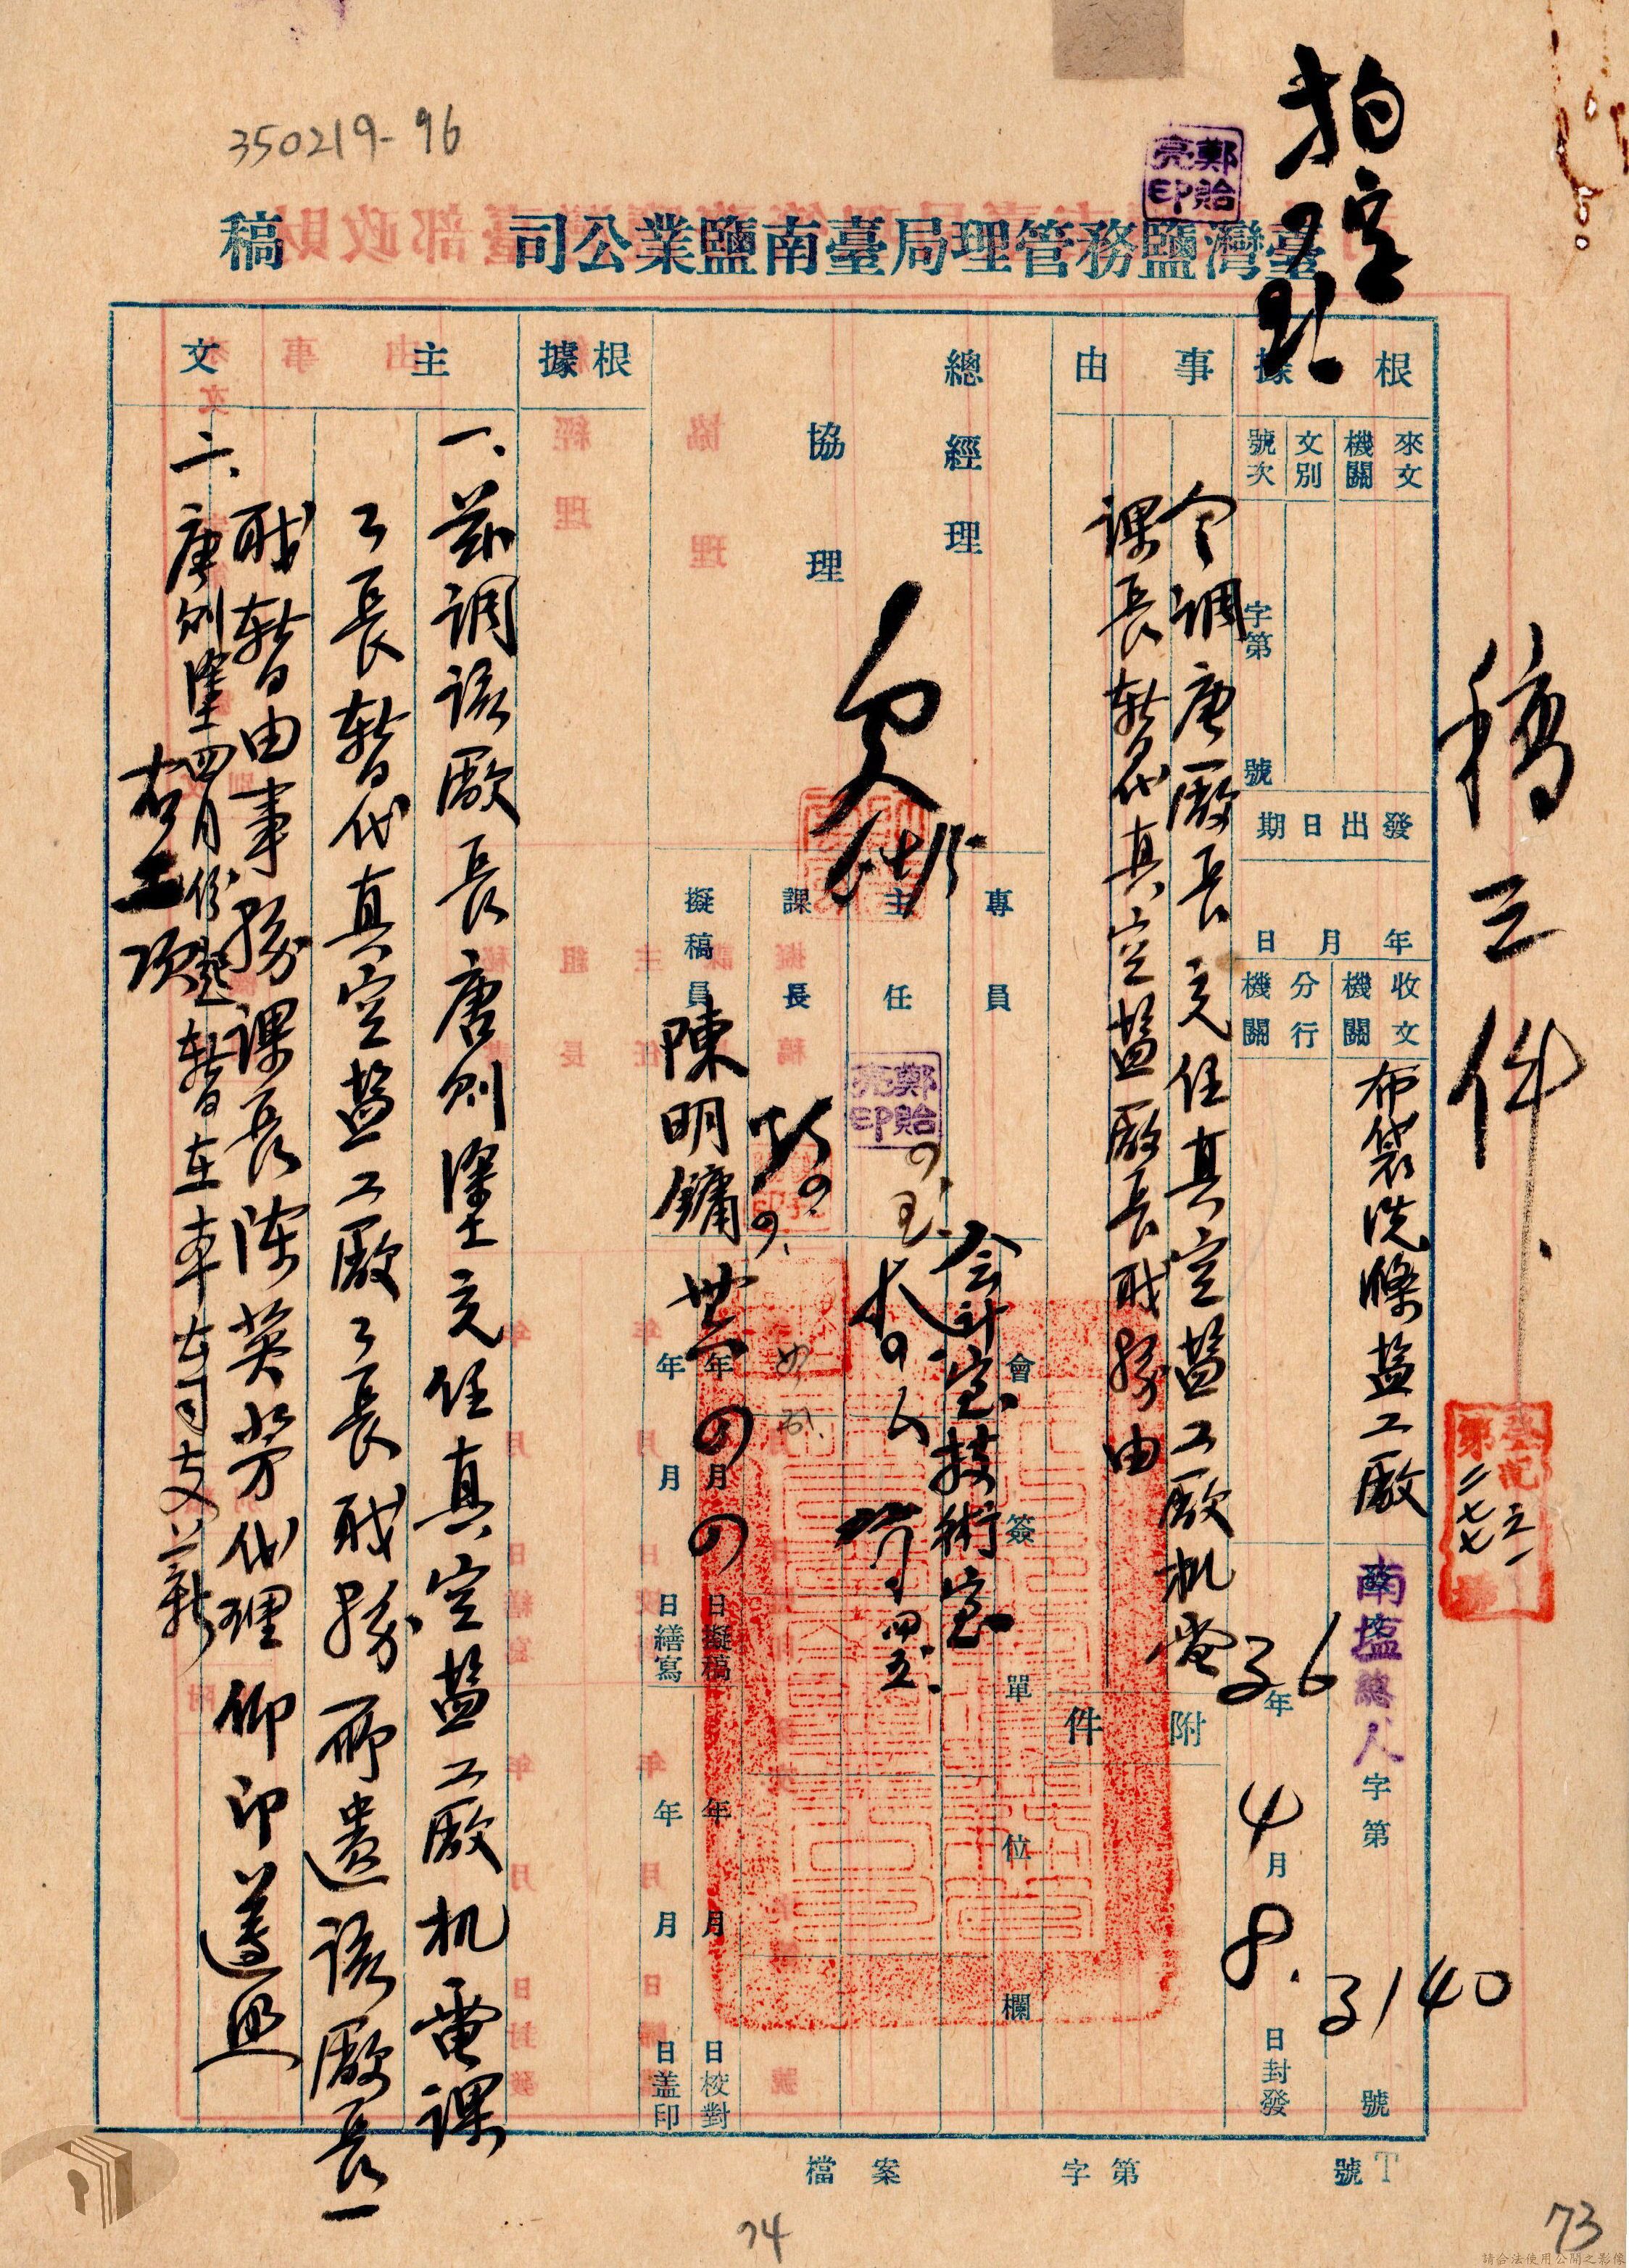 350219-96
鄭貽亮印
臺灣鹽務管理局臺南鹽業公司
稿
稿三件
登記
第
號
根據
來文機關
文別
號次
字第
號
發出日期
年月日
收文機關
布袋洗滌盐工廠
分行機關
南塩總人字第3140號
36年4月8日封發
事由
令調唐廠長充任真空盐工廠机電
課長暫代真空盐廠長职務由
附件
總經理
協理
專員
主任
鄭貽亮印
課長
擬稿員
陳明鏞
會簽單位欄
会計室技術室
卅六年四月四日擬稿
年月日繕寫
年月日校對
年月日盖印
根據
主文
一、茲調該廠長唐則塗充任真空盐工廠机電課
工長暫代真空盐工廠工長职務所遺該廠長一
职暫由事務課長陳英芳代理仰即遵照
二、唐則塗四月份起暫在本公司支薪
右二項
檔案
字第
號
74
73
請合法使用公開之影像